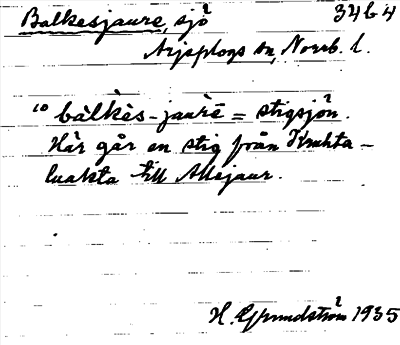 Balkesjaure, sjö 34b4
Arjeplogs sn, Norrb. l.
10 bàlkès-jaurē = stigsjön.
Här går en stig från Kruhta-
luakta till Allejaur.
H. Grundström 1935